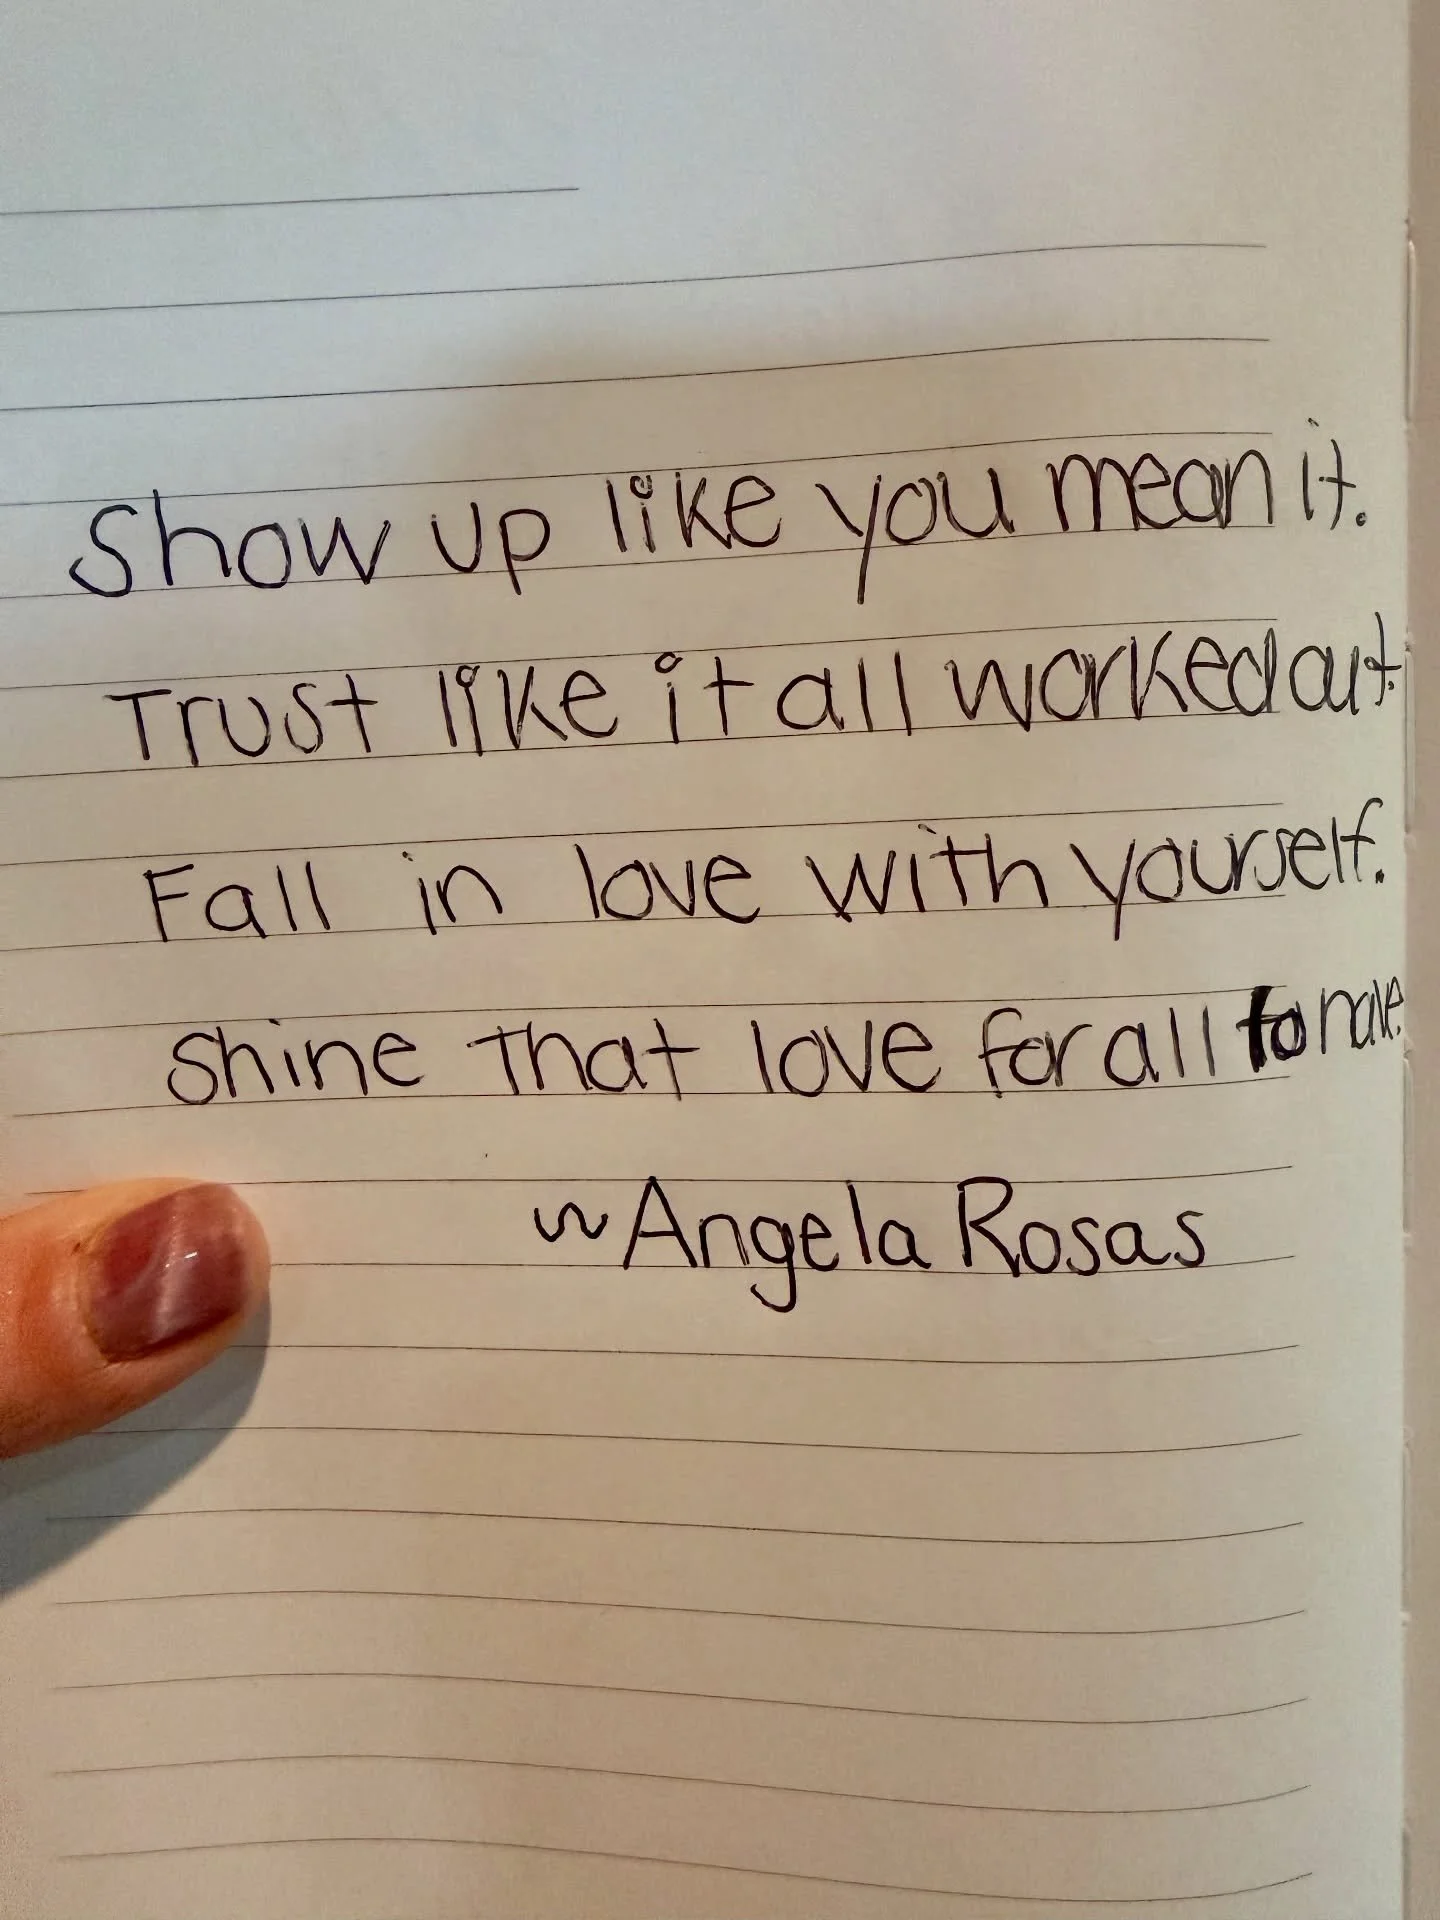 Show up like you mean it.
Trust like it all worked out.
Fall in love with yourself.
Shine that love for all to have.
~Angela Rosas